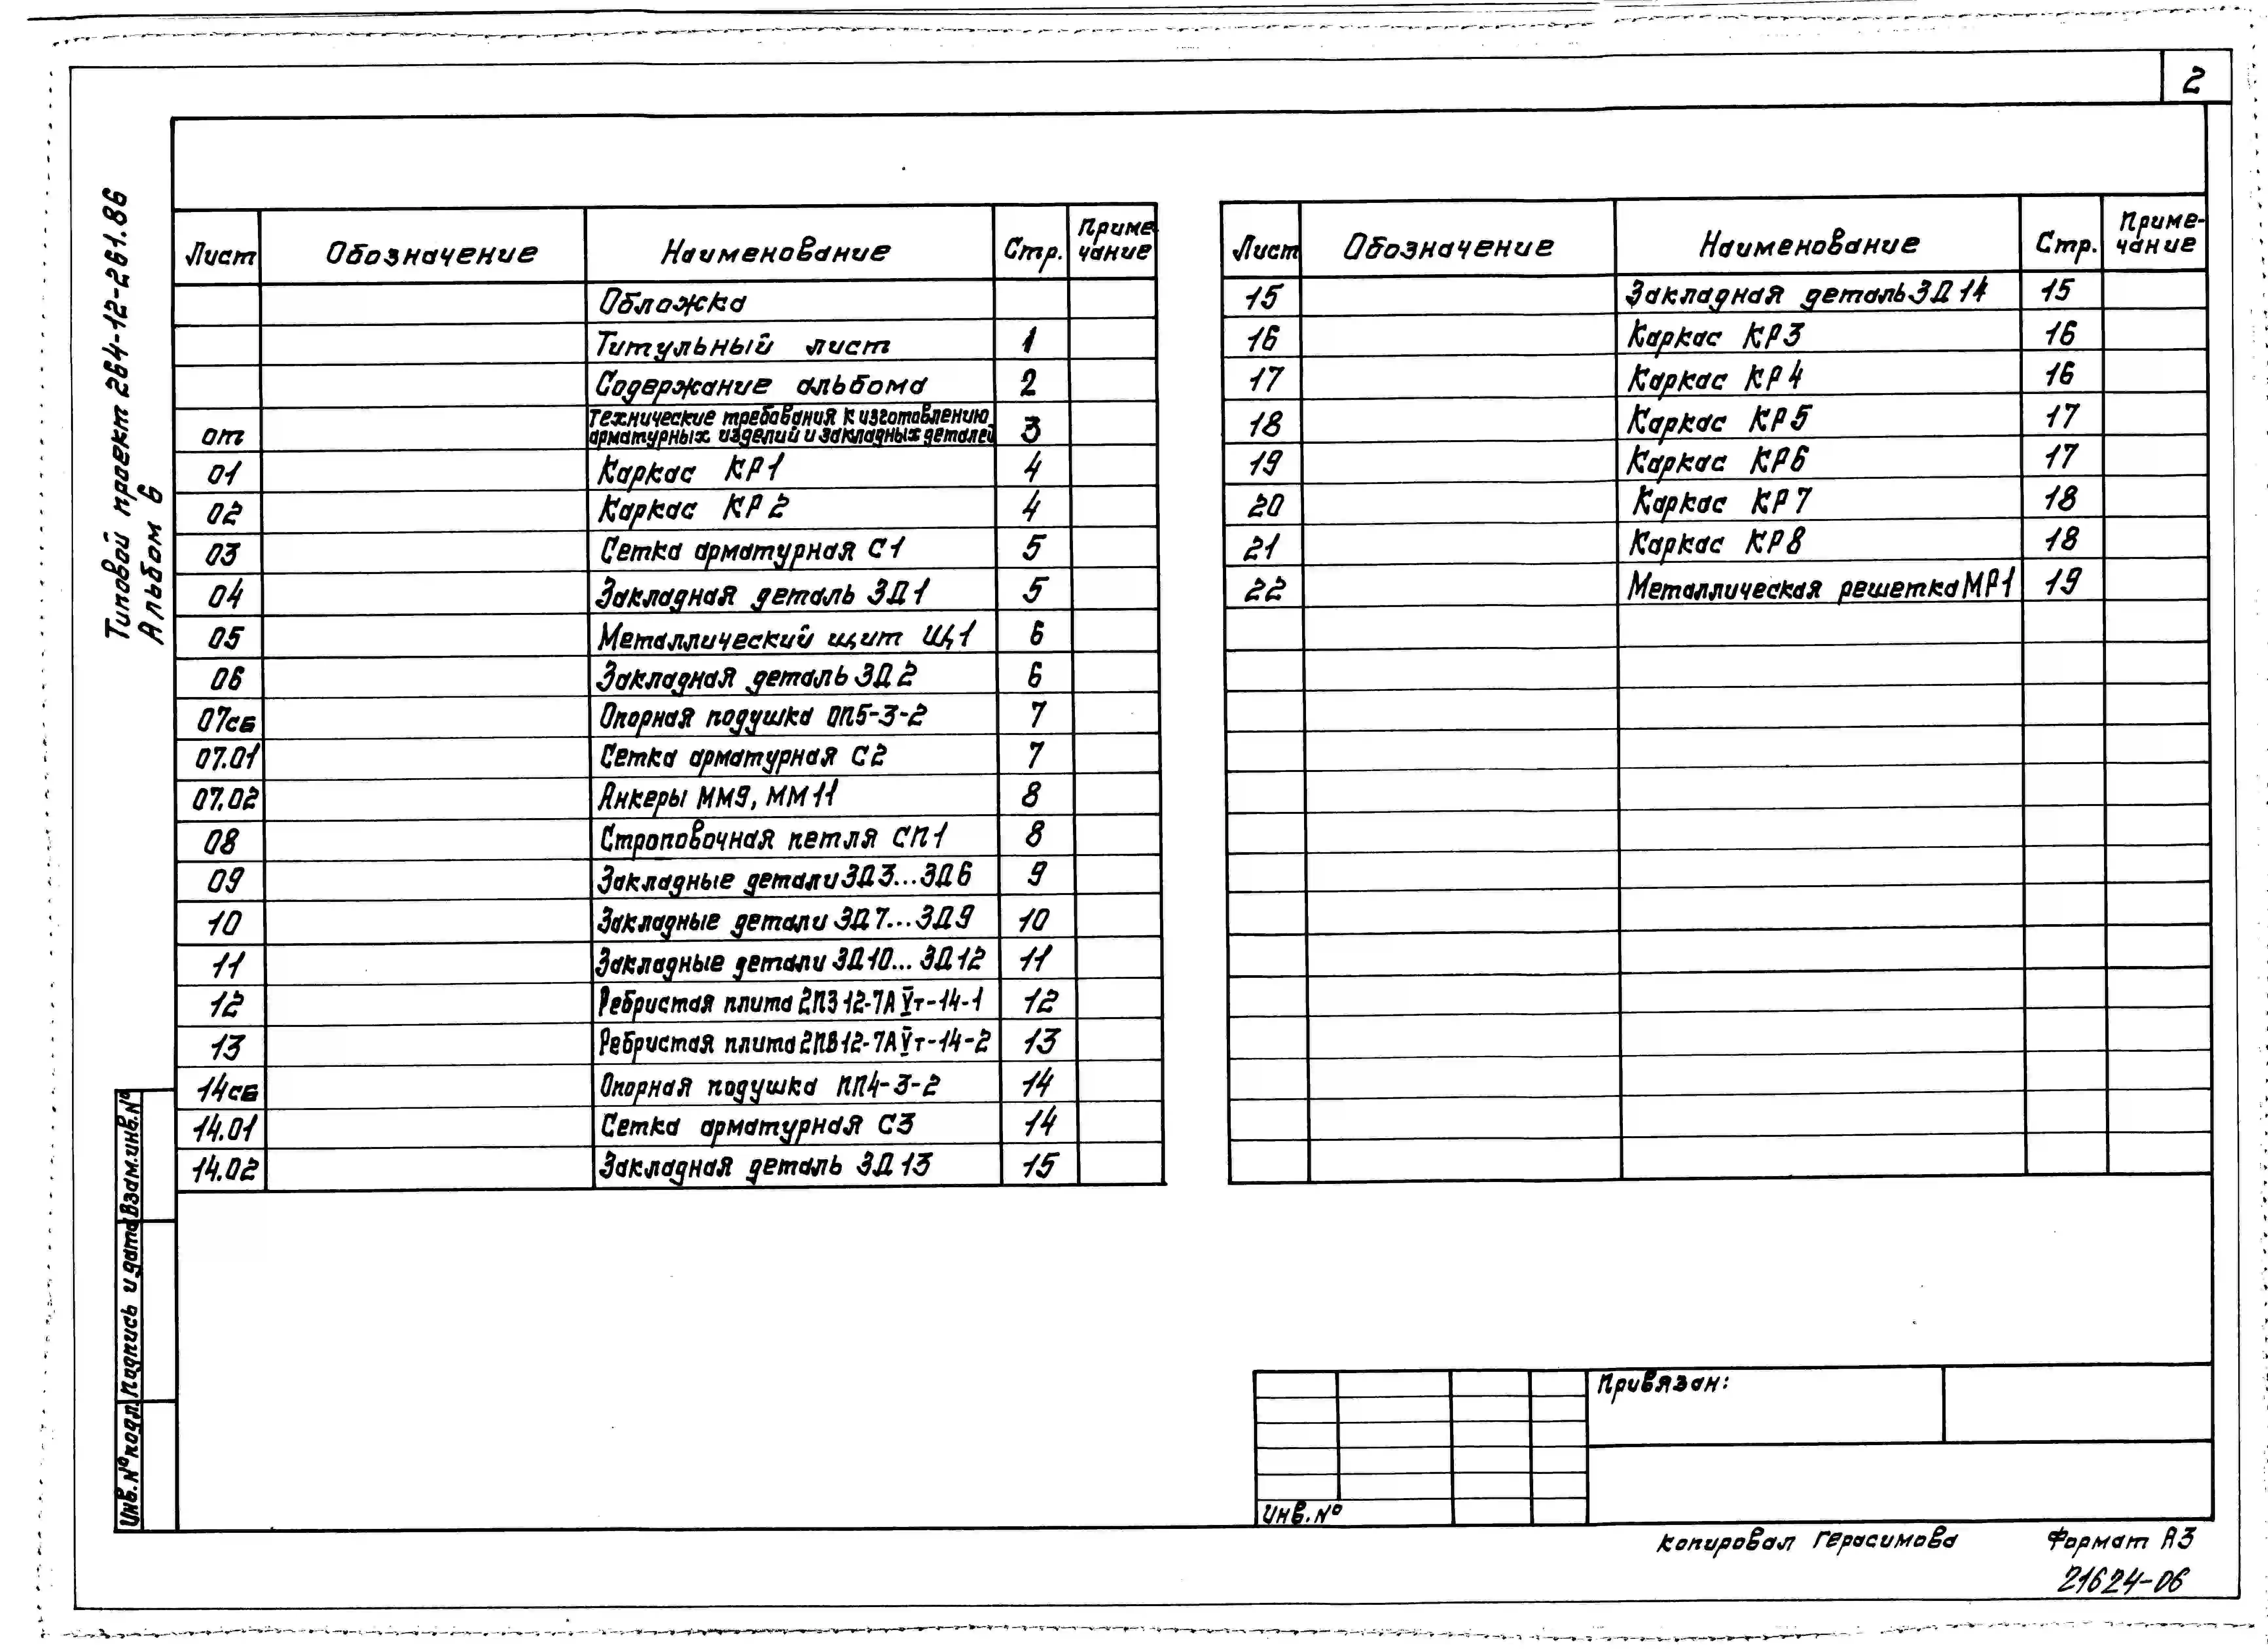 2
Типовой проект 264-12-261.86
Альбом 6
Лист Обозначение Наименование Стр. Приме-чание
Обложка
Титульный лист 1
Содержание альбома 2
от Технические требования к изготовлению арматурных изделий и закладных деталей 3
01 Каркас КР1 4
02 Каркас КР2 4
03 Сетка арматурная С1 5
04 Закладная деталь ЗД1 5
05 Металлический щит Щ1 6
06 Закладная деталь ЗД2 6
07сб Опорная подушка ОП5-3-2 7
07.01 Сетка арматурная С2 7
07.02 Анкеры ММ9, ММ11 8
08 Строповочная петля СП1 8
09 Закладные детали ЗД3...ЗД6 9
10 Закладные детали ЗД7...ЗД9 10
11 Закладные детали ЗД10...ЗД12 11
12 Ребристая плита 2ПЗ12-7АVт-14-1 12
13 Ребристая плита 2ПВ12-7АVт-14-2 13
14сб Опорная подушка ПП4-3-2 14
14.01 Сетка арматурная С3 14
14.02 Закладная деталь ЗД13 15
Лист Обозначение Наименование Стр. Приме-чание
15 Закладная деталь ЗД14 15
16 Каркас КР3 16
17 Каркас КР4 16
18 Каркас КР5 17
19 Каркас КР6 17
20 Каркас КР7 18
21 Каркас КР8 18
22 Металлическая решетка МР1 19
Инв.№ подл. Подпись и дата Взам.инв.№
Привязан:
Инв.№
Копировал Герасимова Формат А3
21624-06